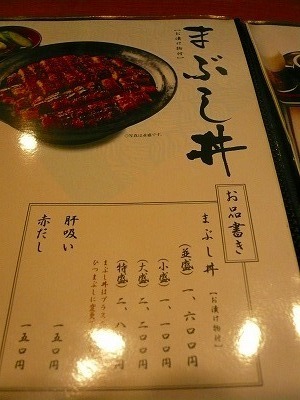 まぶし丼
【お漬け物付】
◎写真は並盛です。
お品書き
まぶし丼【お漬け物付】
(並盛)一、六〇〇円
(小盛)一、一〇〇円
(大盛)二、二〇〇円
(特盛)二、八〇〇円
まぶし丼はプラス
ひつまぶしに変更
肝吸い 一五〇円
赤だし 一五〇円